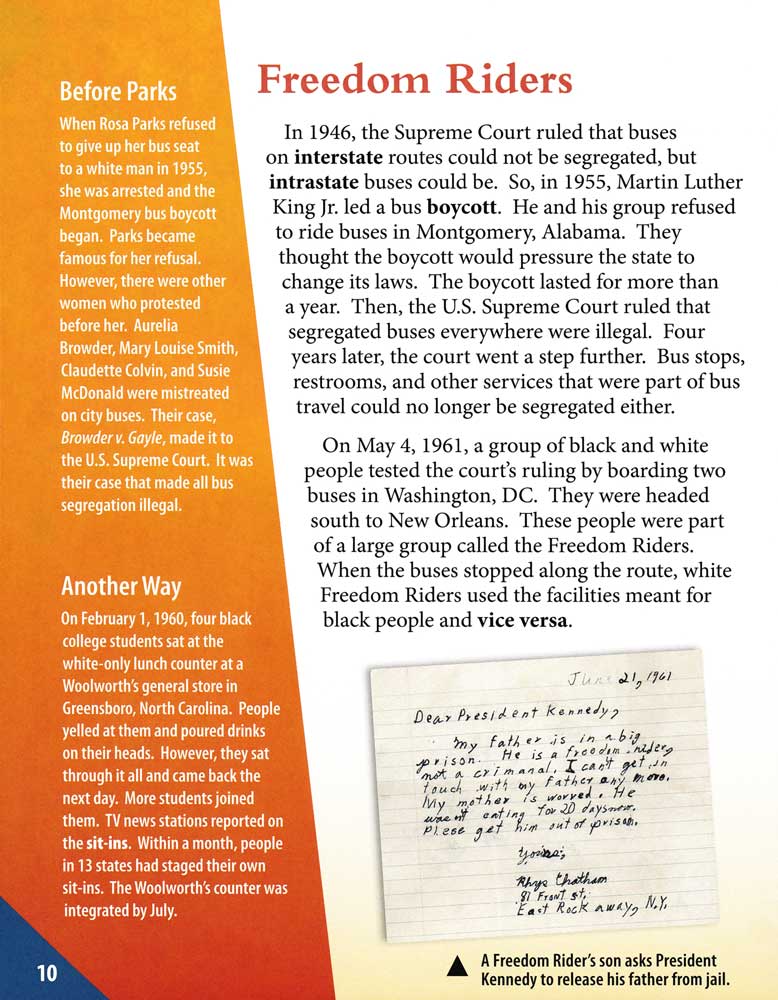 Before Parks
When Rosa Parks refused
to give up her bus seat
to a white man in 1955,
she was arrested and the
Montgomery bus boycott
began. Parks became
famous for her refusal.
However, there were other
women who protested
before her. Aurelia
Browder, Mary Louise Smith,
Claudette Colvin, and Susie
McDonald were mistreated
on city buses. Their case,
Browder v. Gayle, made it to
the U.S. Supreme Court. It was
their case that made all bus
segregation illegal.
Another Way
On February 1, 1960, four black
college students sat at the
white-only lunch counter at a
Woolworth's general store in
Greensboro, North Carolina. People
yelled at them and poured drinks
on their heads. However, they sat
through it all and came back the
next day. More students joined
them. TV news stations reported on
the sit-ins. Within a month, people
in 13 states had staged their own
sit-ins. The Woolworth's counter was
integrated by July.
Freedom Riders
In 1946, the Supreme Court ruled that buses
on interstate routes could not be segregated, but
intrastate buses could be. So, in 1955, Martin Luther
King Jr. led a bus boycott. He and his group refused
to ride buses in Montgomery, Alabama. They
thought the boycott would pressure the state to
change its laws. The boycott lasted for more than
a year. Then, the U.S. Supreme Court ruled that
segregated buses everywhere were illegal. Four
years later, the court went a step further. Bus stops,
restrooms, and other services that were part of bus
travel could no longer be segregated either.
On May 4, 1961, a group of black and white
people tested the court's ruling by boarding two
buses in Washington, DC. They were headed
south to New Orleans. These people were part
of a large group called the Freedom Riders.
When the buses stopped along the route, white
Freedom Riders used the facilities meant for
black people and vice versa.
June 21, 1961
Dear President Kennedy,
My father is in a big
prison. He is a freedom rider,
not a crimanal. I can't get in
touch with my father any more.
My mother is worred. He
wasent eating for 20 days now.
Plese get him out of prison.
Yours,
Rhys Chatham
81 Front St.
East Rock away, N.Y.
A Freedom Rider's son asks President
Kennedy to release his father from jail.
10